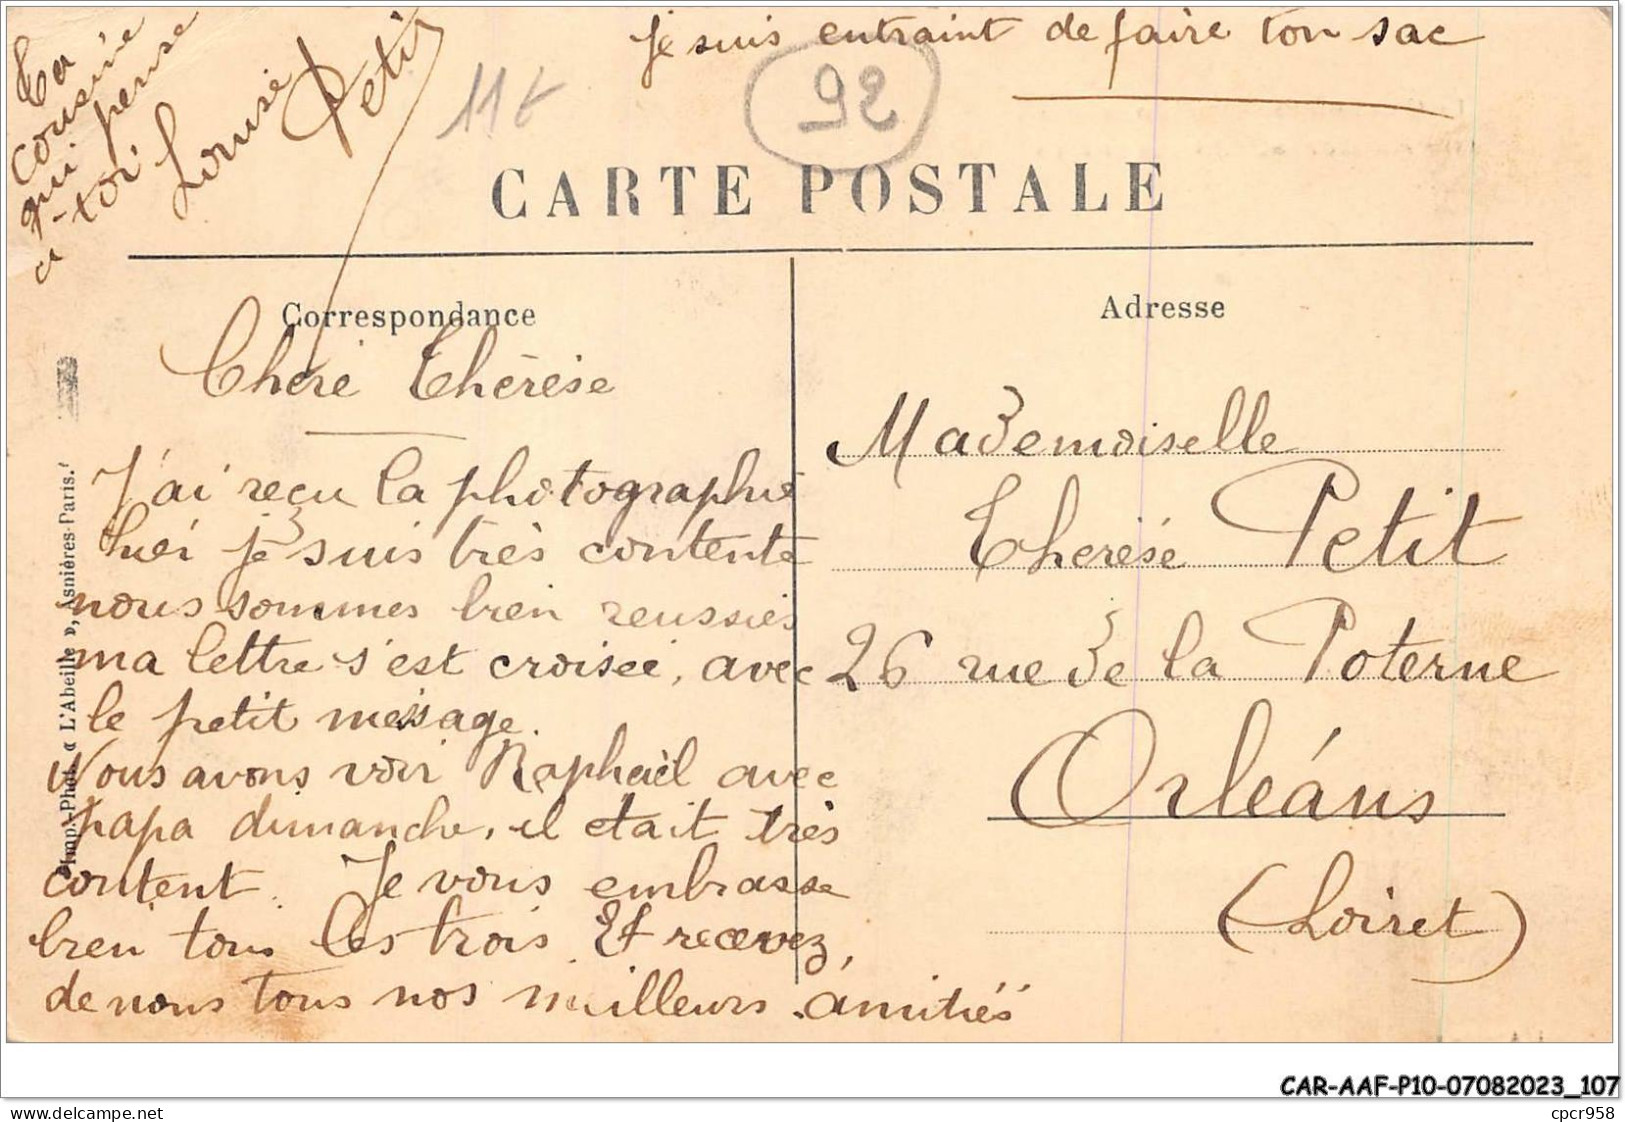 Je suis entraint de faire ton sac
Ta
cousine
qui pense
a-toi
Louise Petit
11t
92
CARTE POSTALE
Correspondance
Adresse
Chère Thérèse
J'ai reçu la photographie
hier je suis très contente
nous sommes bien reussies
ma lettre s'est croiseé, avec
le petit message.
Nous avons voir Raphaël avec
papa dimanche, il etait très
content. Je vous embrasse
bien tous les trois. Et recevez,
de nous tous nos meilleurs amitiés
Mademoiselle
Therèse Petit
26 rue de la Poterne
Orléans
(Loiret)
Imp.-Phot. « L'Abeille », Asnières-Paris.
CAR-AAF-P10-07082023_107
cpcr958